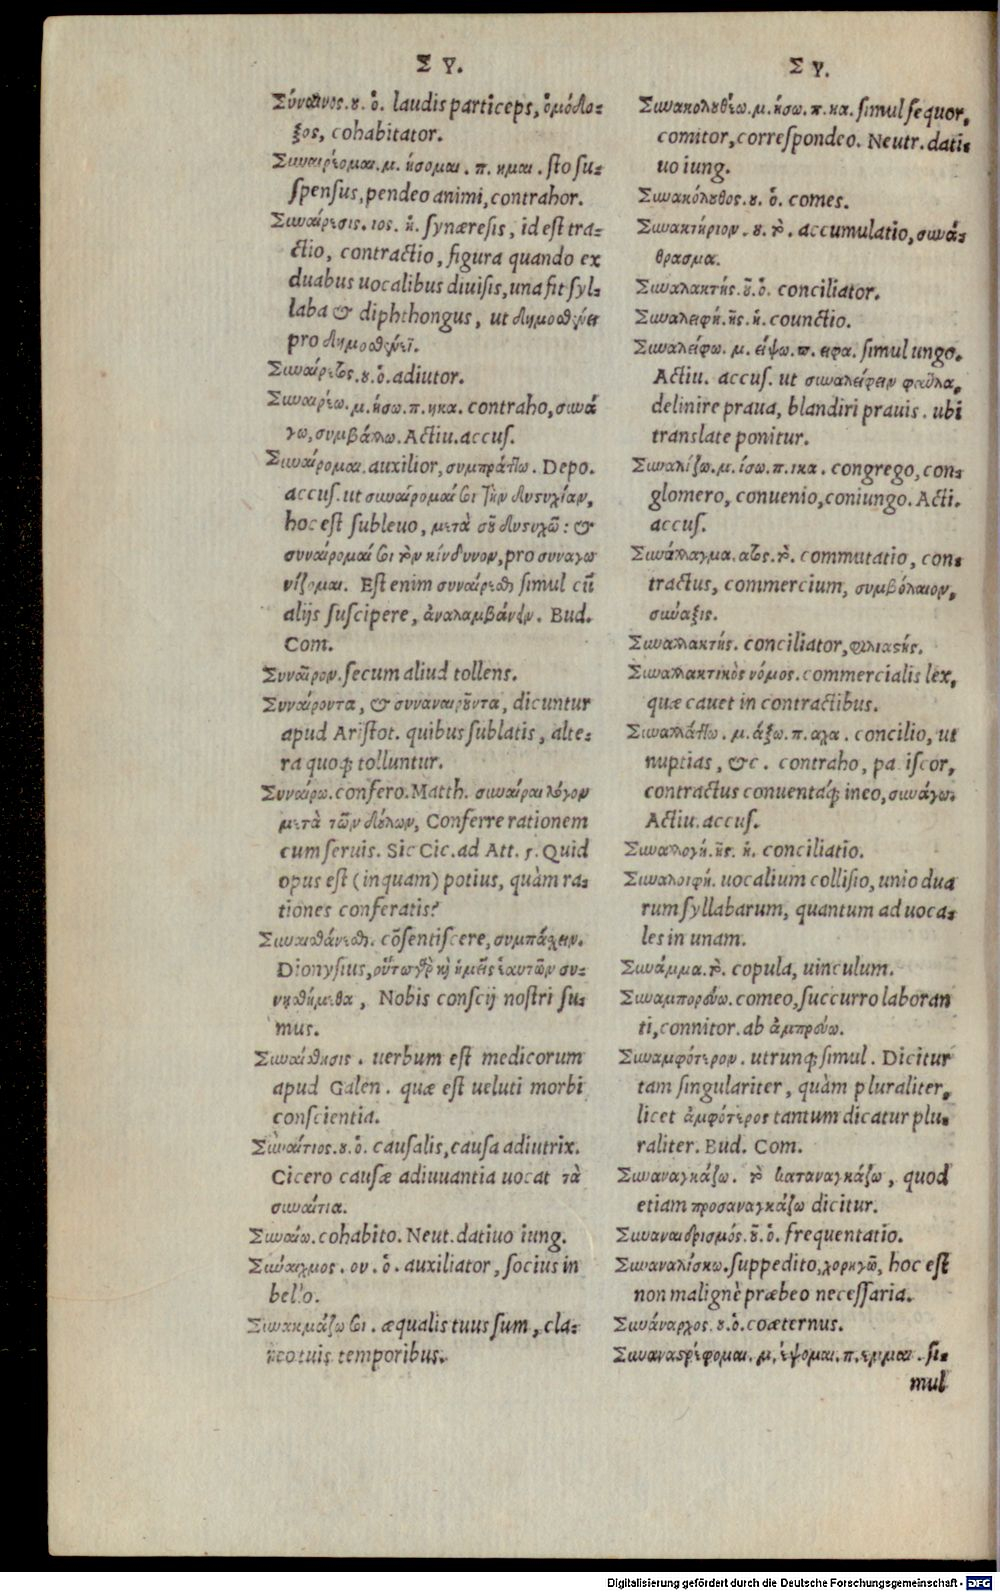 Σ Υ.
Σύναινος.ου.ὁ. laudis particeps, ὁμόδο-
ξος, cohabitator.
Συναιρέομαι.μ. ήσομαι. π. ημαι. sto su-
spensus, pendeo animi, contrahor.
Συναίρεσις. ιος. ἡ. synæresis, id est tra-
ctio, contractio, figura quando ex
duabus uocalibus diuisis, una fit syl-
laba & diphthongus, ut δημοσθένει
pro δημοσθένεϊ.
Συναίρετος.ου.ὁ. adiutor.
Συναιρέω.μ.ήσω.π.ηκα. contraho, συνά
γω, συμβάλλω. Actiu. accus.
Συναίρομαι. auxilior, συμπράττω. Depo.
accus. ut συναίρομαί σοι τὴν δυσυχίαν,
hoc est subleuo, μετὰ σοῦ δυσυχῶ: &
συναίρομαί σοι τὸν κίνδυνον, pro συναγω
νίζομαι. Est enim συναίρεσθαι simul cũ
alijs suscipere, ἀναλαμβάνειν. Bud.
Com.
Συναῖρον. secum aliud tollens.
Συναίροντα, & συναναιροῦντα, dicuntur
apud Aristot. quibus sublatis, alte-
ra quoq; tolluntur.
Συναίρω. confero. Matth. συναίραι λόγον
μετὰ τῶν δούλων, Conferre rationem
cum seruis. Sic Cic. ad Att. 5. Quid
opus est (inquam) potius, quàm ra-
tiones conferatis?
Συναισθάνεσθαι. cõsentiscere, συμπάσχειν.
Dionysius, οὕτω γὸ καὶ ἡμεῖς ἑαυτῶν συ-
νησθήμεθα, Nobis conscij nostri su-
mus.
Συναίσθησις. uerbum est medicorum
apud Galen. quæ est ueluti morbi
conscientia.
Συναίτιος.ου.ὁ. causalis, causa adiutrix.
Cicero causæ adiuuantia uocat τὰ
συναίτια.
Συναίω. cohabito. Neut. datiuo iung.
Σύναιχμος. ου. ὁ. auxiliator, socius in
bello.
Συνακμάζω σοι. æqualis tuus sum, cla-
reo tuis temporibus.
Σ Υ.
Συνακολουθέω.μ.ήσω.π.κα. simul sequor,
comitor, correspondeo. Neutr. dati-
uo iung.
Συνακόλουθος.ου. ὁ. comes.
Συνακτήριον.ου.τὸ. accumulatio, συνά-
θρασμα.
Συναλακτής.οῦ.ὁ. conciliator.
Συναλειφή.ῆς.ἡ. counctio.
Συναλείφω. μ. είψω. π. ειφα. simul ungo.
Actiu. accus. ut συναλείφειν φαῦλα,
delinire praua, blandiri prauis. ubi
translate ponitur.
Συναλίζω.μ.ίσω.π.ικα. congrego, con-
glomero, conuenio, coniungo. Acti.
accus.
Συνάλλαγμα.ατος.τὸ. commutatio, con-
tractus, commercium, συμβόλαιον,
σύναξις.
Συναλλακτής. conciliator, φιλιαστής.
Συναλλακτικὸς νόμος. commercialis lex,
quæ cauet in contractibus.
Συναλλάττω. μ. άξω. π. αχα. concilio, ut
nuptias, &c. contraho, pa iscor,
contractus conuentáq; ineo, συνάγω.
Actiu. accus.
Συναλλογή.ῆς. ἡ. conciliatio.
Συναλοιφή. uocalium collisio, unio dua
rum syllabarum, quantum ad uoca-
les in unam.
Συνάμμα.τὸ. copula, uinculum.
Συναμπορεύω. comeo, succurro laboran
ti, connitor. ab ἀμπρεύω.
Συναμφότερον. utrunq; simul. Dicitur
tam singulariter, quàm pluraliter,
licet ἀμφότερος tantum dicatur plu-
raliter. Bud. Com.
Συναναγκάζω. τὸ καταναγκάζω, quod
etiam προσαναγκάζω dicitur.
Συναναδρισμός.οῦ.ὁ. frequentatio.
Συναναλίσκω. suppedito, χορηγῶ, hoc est
non malignè præbeo necessaria.
Συνάναρχος.ου.ὁ. coæternus.
Συναναστρέφομαι. μ. έψομαι. π. εμμαι. si-
mul
Digitalisierung gefördert durch die Deutsche Forschungsgemeinschaft - DFG